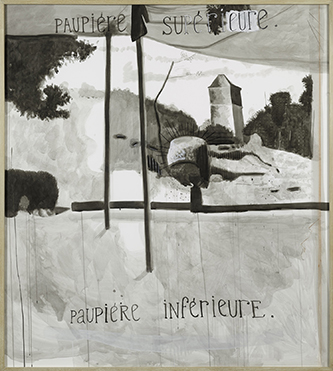 PAUPIÈRE SUPÉRIEURE.
PAUPIÈRE INFÉRIEURE.